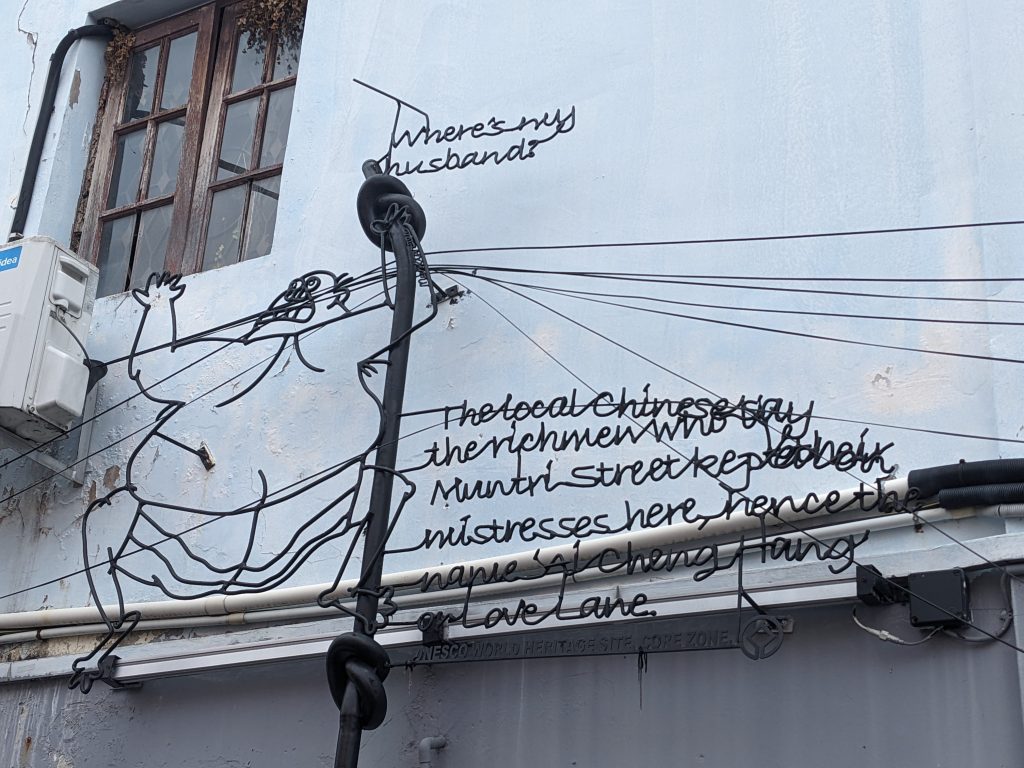 Where's my
husband?
The local Chinese say
the rich men who
Muntri Street kept their
mistresses here, hence the
name 'Ai Cheng Hang'
or Love Lane.
UNESCO WORLD HERITAGE SITE. CORE ZONE.
idea